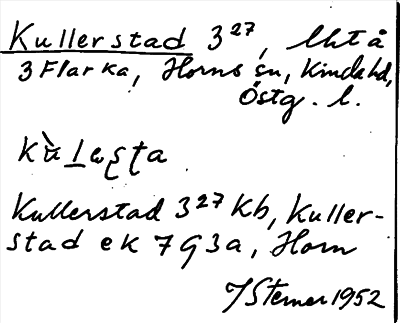 Kullerstad 3²⁷, lht å
3 Flarka, Horns sn, Kinda hd,
Östg. l.
Kullerstad 3²⁷ Kb, Kuller-
stad ek 7 G 3a, Horn
Sterner 1952